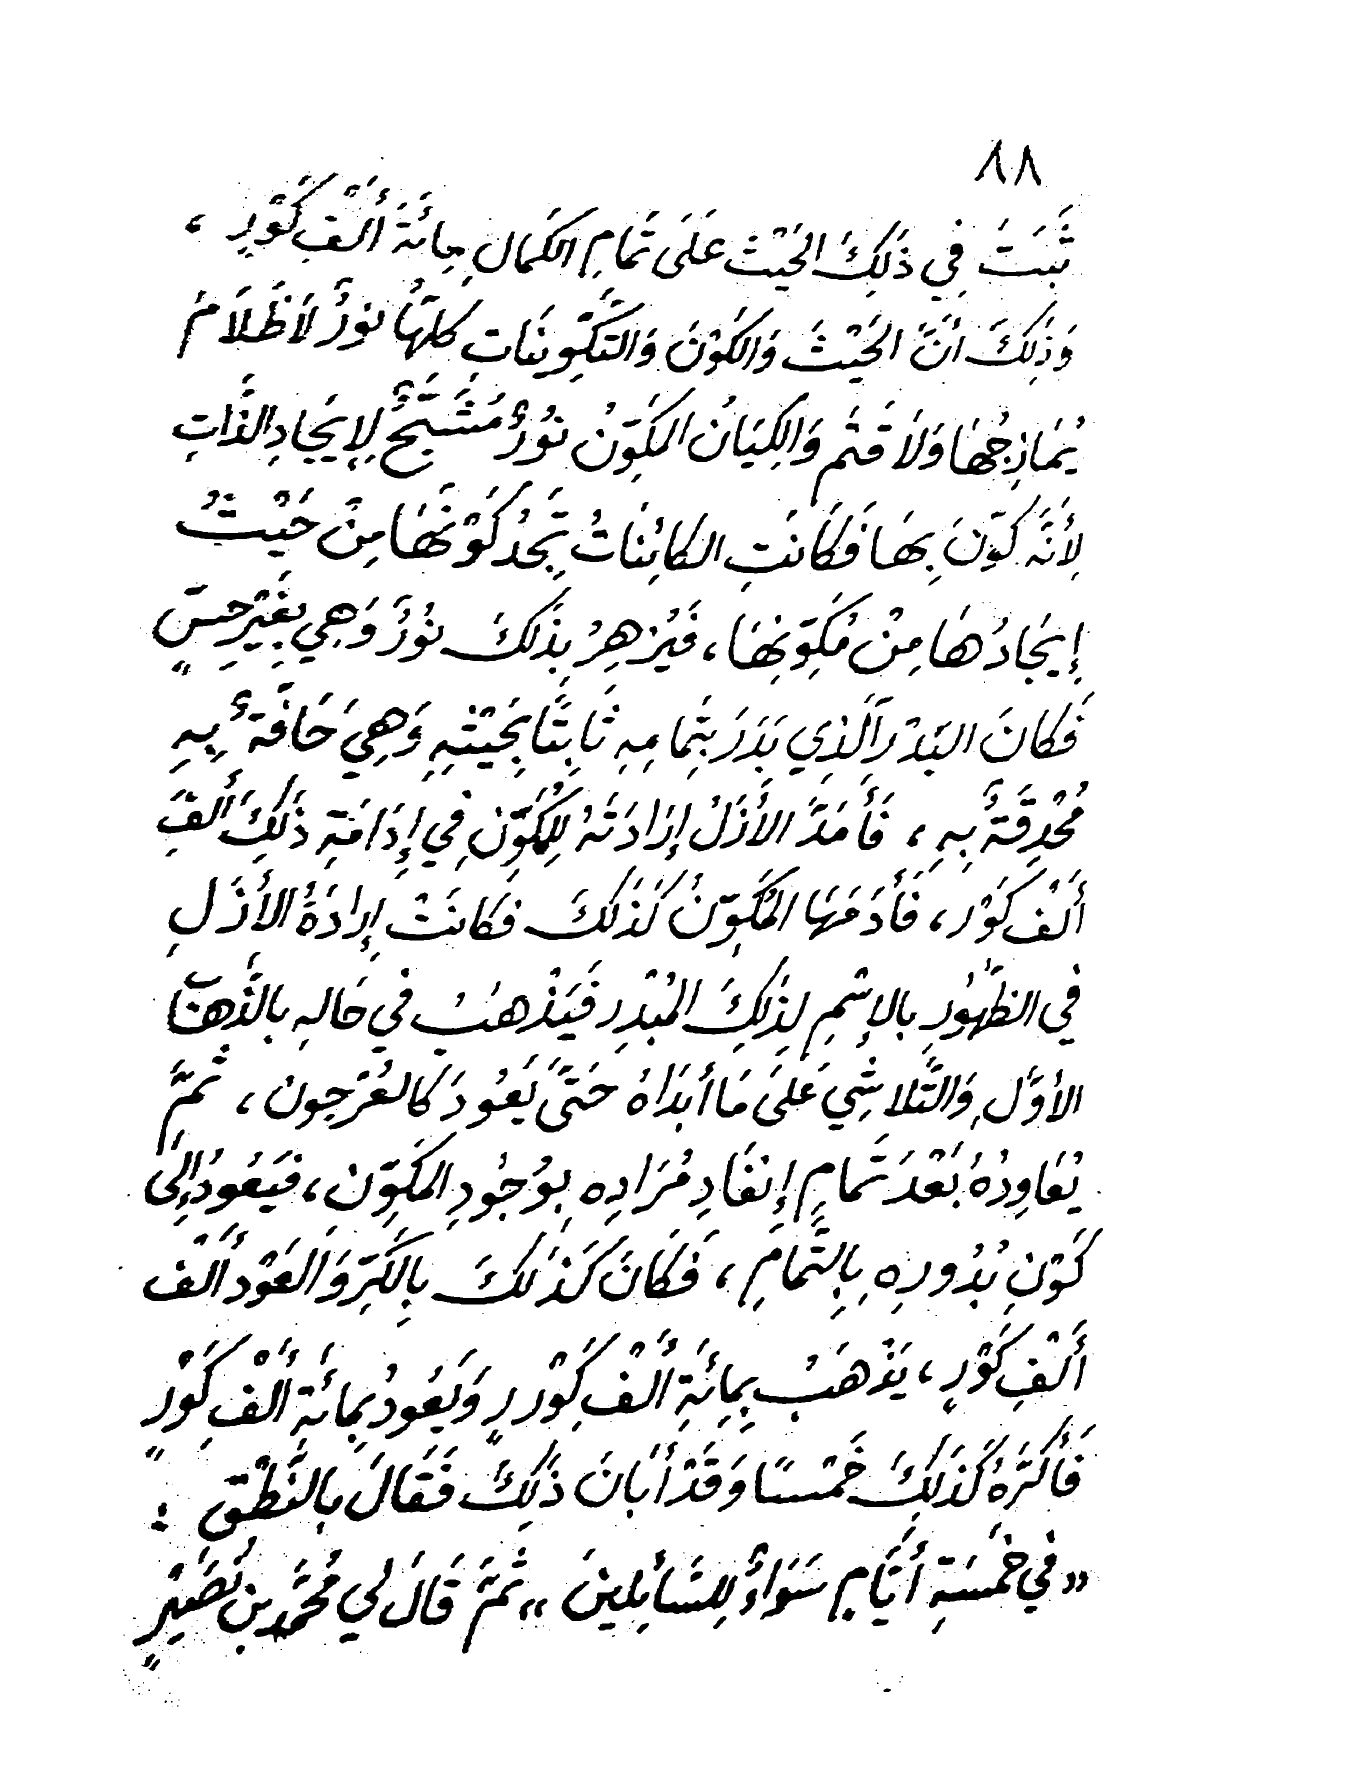 ٨٨
ثَبَتَ فِي ذَلِكَ الحَيْثِ عَلَى تَمَامِ الكَمَالِ مِائَةَ أَلْفِ كَوْرٍ ،
وَذَلِكَ أَنَّ الحَيْثَ وَالكَوْنَ وَالتَّكْوِينَاتِ كُلَّهَا نُورٌ لَا ظَلَامُ
يُمَازِجُهَا وَلَا قَتْم وَالكِيَانُ المُكَوَّنُ نُورٌ مُشَبَّحٌ لِإيجَادِ الذَّاتِ
لِأَنَّهُ كَوَّنَ بِهَا فَكَانَتِ الكَائِنَاتُ تَجِدُ كَوْنَهَا مِنْ حَيْثُ
إيجَادُهَا مِنْ مُكَوِّنِهَا ، فَيُزْهِرُ بِذَلِكَ نُورٌ وَهِي بِغَيْرِ حِسٍّ
فَكَانَ البَدْرُ الَّذِي بَدَرَ بِتَمَامِهِ ثَابِتًا بِحَيْثِهِ وَهِيَ حَافَّةٌ بِهِ
مُحْدِقَةٌ بِهِ ، فَأَمَدَّ الأَزَلُ إرَادَتَهُ لِلْمُكَوَّنِ فِي إدَامَةِ ذَلِكَ أَلْفَ
أَلْفِ كَوْرٍ ، فَأَدَمَهَا المُكَوِّنُ كَذَلِكَ فَكَانَتْ إرَادَةُ الأَزَلِ
فِي الظُّهُورِ بِالإسْمِ لِذَلِكَ المُبْدِرِ فَيَذْهَبُ فِي حَالِهِ بِالذَّهَابِ
الأَوَّلِ وَالتَّلاشِي عَلَى مَا أَبْدَاهُ حَتَّى يَعُودَ كَالعُرْجُونِ ، ثُمَّ
يُعَاوِدُهُ بَعْدَ تَمَامِ إنْفَاذِ مُرَادِهِ بِوُجُودِ المُكَوِّنِ ، فَيَعُودُ إلَى
كَوْنِ بُدُورِهِ بِالتَّمَامِ ، فَكَانَ كَذَلِكَ بِالكَرِّ وَالعَوْدِ أَلْفَ
أَلْفِ كَوْرٍ ، يَذْهَبُ بِمِائَةِ أَلْفِ كَوْرٍ وَيَعُودُ بِمِائَةِ أَلْفِ كَوْرٍ
فَأَكَرَّهُ كَذَلِكَ خَمْسًا وَقَدْ أَبَانَ ذَلِكَ فَقَالَ بِالنُّطْقِ :
« فِي خَمْسَةِ أَيَّامٍ سَوَاءً لِلسَّائِلِينَ » ثُمَّ قَالَ لِي مُحَمَّد بن نُصَيْرٍ